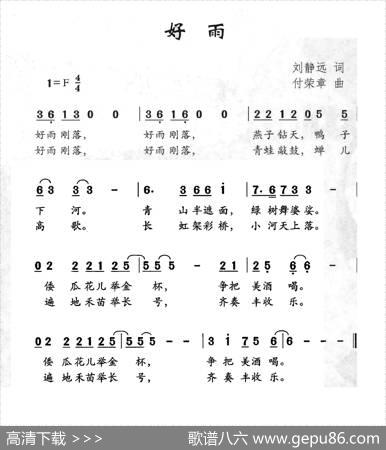 好雨
1=F 4/4
刘静远 词
付荣章 曲
3 6 1 3 0 0 | 3 6 1 6 0 0 | 2 2 1 2 0 5 5 |
好雨刚落, 好雨刚落, 燕子钻天,鸭子
好雨刚落, 好雨刚落, 青蛙敲鼓,蝉儿
6 3 3 3 - | 6. 3 6 6 i | 7. 6 7 3 3 3 |
下河。 青山半遮面,绿树舞婆娑。
高歌。 长虹架彩桥,小河天上落。
0 2 2 2 2 1 2 5 | 5 5 5 - | 2 2 1 2 5 | 6 - 6 - |
倭瓜花儿举金杯, 争把美酒喝。
遍地禾苗举长号, 齐奏丰收乐。
0 2 2 2 2 1 2 5 | 5 5 5 - | 3 i 7 5 6 | 6 - - - |
倭瓜花儿举金杯, 争把美酒喝。
遍地禾苗举长号, 齐奏丰收乐。
高清下载 >>>
歌谱八六 www.gepu86.com